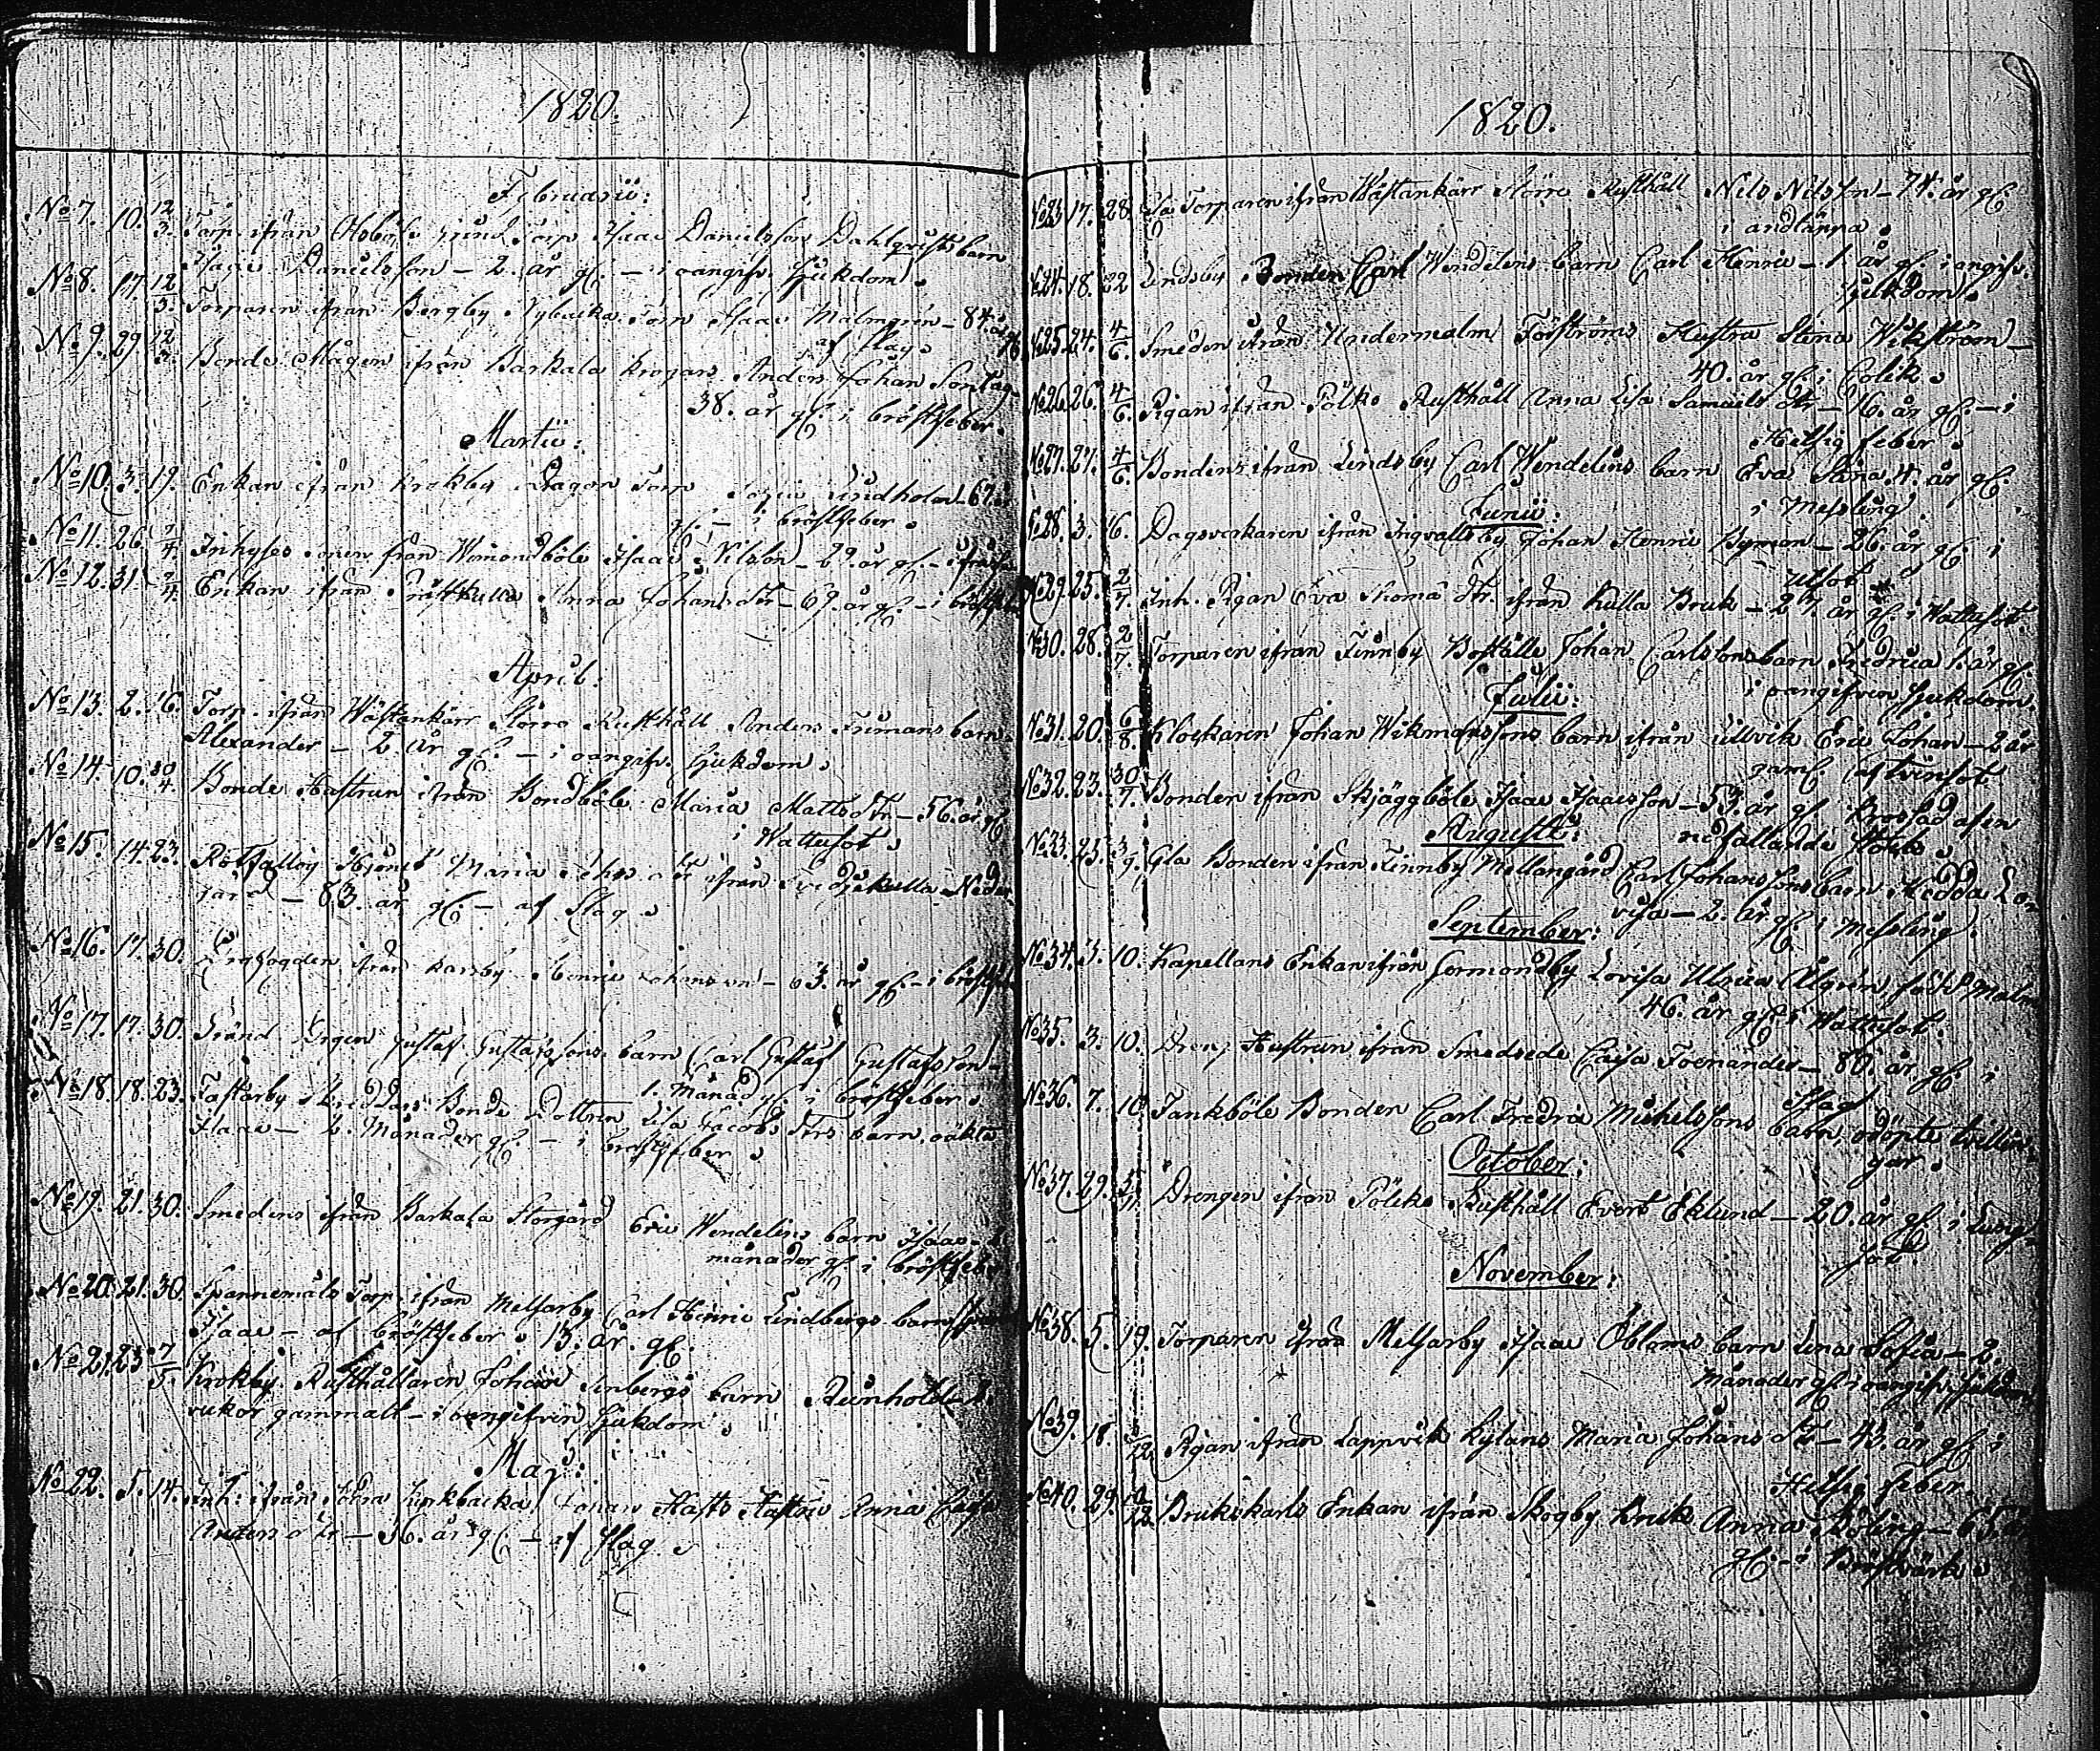 1820.
Februarii:
No 7. 10. 12/3. Torp. ifrån Olsböle grund Torp Isaac Danielsson Dahlqvists barn
Isaac Danielsson – 2. år gl. – i oangifv. sjukdom.
No 8. 17. 12/3. Torparen ifrån Bergby Nybacka Torp Isaac Malmgrén – 84. år gl.
af slag.
No 9. 29. 12/3. Bonde Mågen ifrån Baskala Krogars Anders Johan Sontag
38. år gl. i bröstfeber.
Martii:
No 10. 3. 19. Enkan ifrån Krokby Torp Lindholm – 67. år
gl. – i bröstfeber.
No 11. 26. 2/4 Inhyses ifrån Wimondböle Isaac Nilsson – 29. år gl. –
No 12. 31. 2/4. Enkan ifrån Prästkulla Anna Johans dtr – 69. år gl. – i bröstfeber
April:
No 13. 2. 16. Torp. ifrån Wästankärr Större Rusthåll Anders Frimans barn
Alexander – 2. år gl. – i oangifv. sjukdom.
No 14. 10. 30/4. Bonde Hustrun ifrån Bondböle Maria Matts dtr – 56. år gl.
i Wattusot.
No 15. 14. 23. Rotfattig Maria Johs dtr ifrån Svedjekulla Neder
gård – 83. år gl. – af Slag.
No 16. 17. 30. ifrån Karsby Henric Johansson – 63. år gl. – i bröstfeber
No 17. 17. 30. Gustaf Gustafssons barn Carl Gustaf Gustafsson –
1. Månad gl. i bröstfeber.
No 18. 18. 23. Fastarby Bonde Dottren Lisa Jacobs dtrs barn, oäkta
Isaac – 2. Månader gl. – i bröstfeber.
No 19. 21. 30. Smedens ifrån Baskala Storgård Eric Wendelins barn Isaac –
månader gl. i bröstfeber
No 20. 21. 30. Spannemåls Torp. ifrån Melsarby Carl Henric Lindbergs barn
Isaac – af bröstfeber. 13. år. gl.
No 21. 23. 7/5. Krokby Rusthållaren Johan barn Reinhold –
vukor gammalt – i oangifven sjukdom.
Maj:
No 22. 5. 14. Inh: ifrån Johan Hustru Anna Caisa
Anders dtr – 56. år gl. – af slag.
1820.
No 23. 17. 28. Torparen ifrån Wästankärr Större Rusthåll Nils Nilsson – 74. år gl.
i andtäppa.
No 24. 18. 22 Lindsby Bonden Carl Wendelins barn Carl Henric – 1 år gl. i angifv.
sjukdom.
No 25. 24. 4/6. Smeden ifrån Undermalm Forsströms Hustru Stina Wikström –
40. år gl. i Colik.
No 26. 26. 4/6. Pigan ifrån Pölks Rusthåll Anna Lisa Samuels dtr – 16. år gl. – i
Hetsig feber.
No 27. 27. 4/6. Bondens ifrån Lindsby Carl Wendelins barn Eva Stina 4. år gl.
i Messling.
Junii:
No 28. 3. 6. Dagsverkaren ifrån Ingvallsby Johan Henric Byman – 26. år gl. i
utsot
No 29. 25. 2/7. Inh. Pigan Eva Thoma dtr. ifrån Kulla Bruk – 27. år gl. i Wattusot.
No 30. 28. 2/7. Torparen ifrån Finnby Boställe Johan Carlssons barn Fredrica 1. år gl.
i oangifven sjukdom.
Julii:
No 31. 20. 6/8. Klockaren Johan Wikmanssons barn ifrån Lillvik Eric Johan – 2 år
gaml. af tvinsot
No 32. 23. 30/7. Bonden ifrån Skjäggböle Isaac Isaacsson – 53. år gl. krossad af en
nedfallande stock.
Augusti:
No 33. 23. 3/9. Gla Bonden ifrån Finnby Mellangård Carl Johanssons barn Hedda Lo
visa – 2. år gl. i Messling.
September:
No 34. 3. 10. Kapellans Enkan ifrån Germondby Lovisa Ulrica Ålgren född Malm
46. år gl. i Wattusot.
No 35. 3. 10. Dreng Hustrun ifrån Smedsede Caisa Foenander – 80. år gl. i
Slag.
No 36. 7. 10. Jankböle Bonden Carl Fredric Michelssons barn, odöpte tvillin
gar.
October:
No 37. 29. 5/11. Drengen ifrån Pölcks Rusthåll Evert Eklund – 20. år gl. i Lung
sot.
November:
No 38. 5. 19. Torparen ifrån Melsarby Isaac Öbloms barn Lena Sofia – 2.
Månader gl. i oangifv. sjukdom
No 39. 18. 3/12. Pigan ifrån Lappvik Kylans Maria Johans dtr – 43. år gl. i
Hetsig feber.
No 40. 29. 10/12. Brukskarls Enkan ifrån Skogby Bruk Anna Röling – 65. år
gl. – i Bröstvärk.